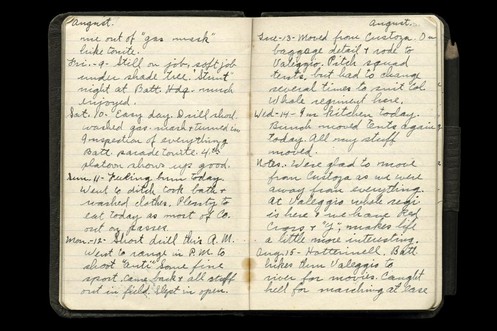 August.
me out of "gas mask"
hike tonite.
Fri.-9- Still on job, soft job
under shade tree. "Stunt"
night at Batt. Hdq - much
enjoyed.
Sat. 10- Easy day. Drill short
washed gas-mask & turned in
Inspection of everything
Batt. parade tonite. 4th
platoon shows up good.
Sun. 11- Feeling bum today.
Went to ditch, took bath &
washed clothes. Plenty to
eat today as most of Co.
out on passes.
Mon.-12- Short drill this A.M.
Went to range in P.M. to
shoot Some fine
sport. Came back & all staff
out in field. Slept in open.
August.
Tue-13- Moved from Custoza. On
baggage detail & rode to
Valeggio. Pitch squad
tents, but had to change
several times to suit Col.
Whole regiment here.
Wed-14- In kitchen today.
Bunch moved tents again
today. All my stuff
moved.
Notes. Were glad to move
from Custoza as we were
away from everything.
At Valeggio whole regi
is here & we have Red
Cross & "Y", makes life
a little more interesting.
Aug. 15- Hotter Batt
hikes from Valeggio to
river for movies. Caught
hell for marching at ease